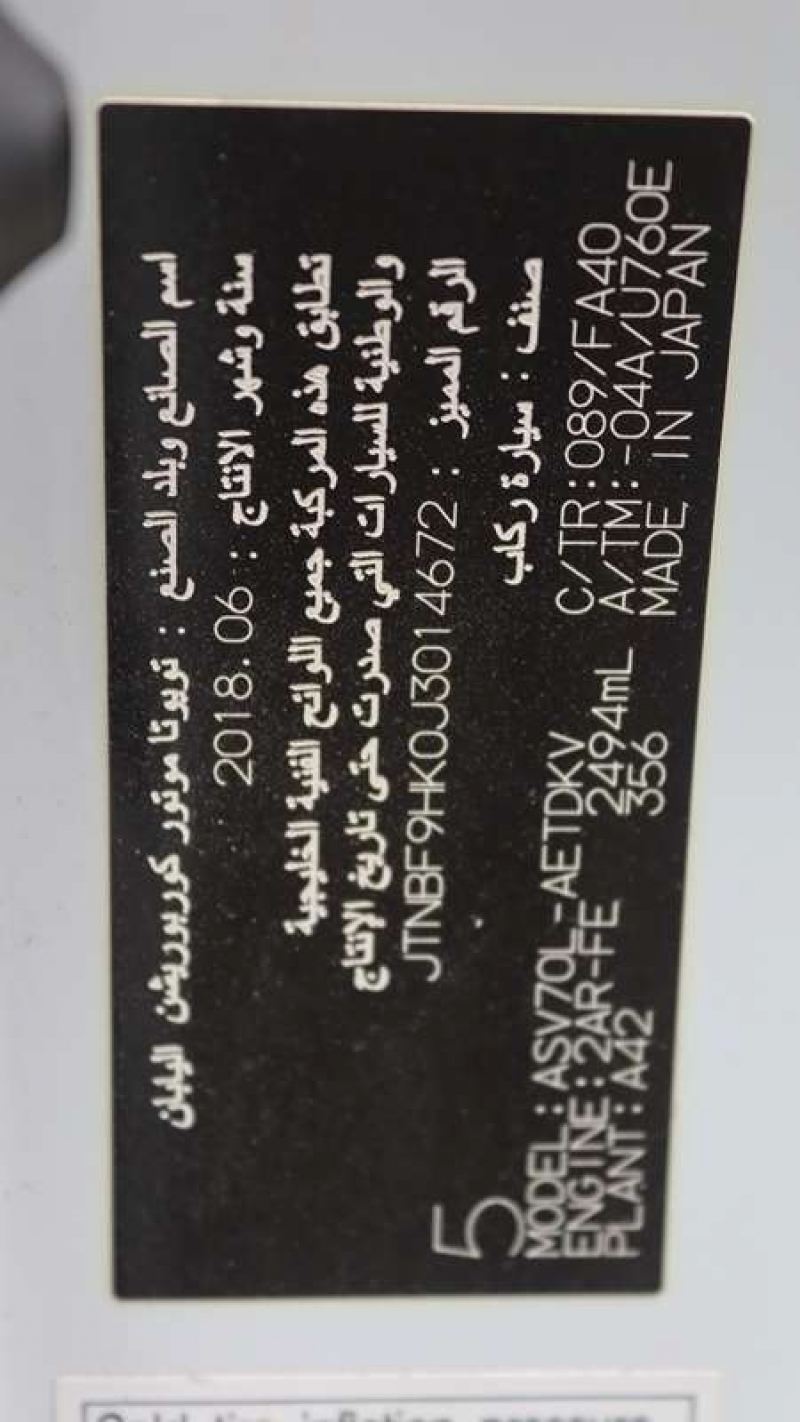 اسم الصانع وبلد الصنع : تويوتا موتور كوربوريشن اليابان
سنة وشهر الانتاج : 2018.06
تطابق هذه المركبة جميع اللوائح الفنية الخليجية
والوطنية للسيارات التي صدرت حتى تاريخ الانتاج
الرقم المميز : JTNBF9HK0J3014672
صنف : سيارة ركاب
5
MODEL : ASV70L-AETDKV C/TR:089/FA40
ENGINE : 2AR-FE 2494mL A/TM:-04A/U760E
PLANT : A42 356 MADE IN JAPAN
Cold tire inflation pressure